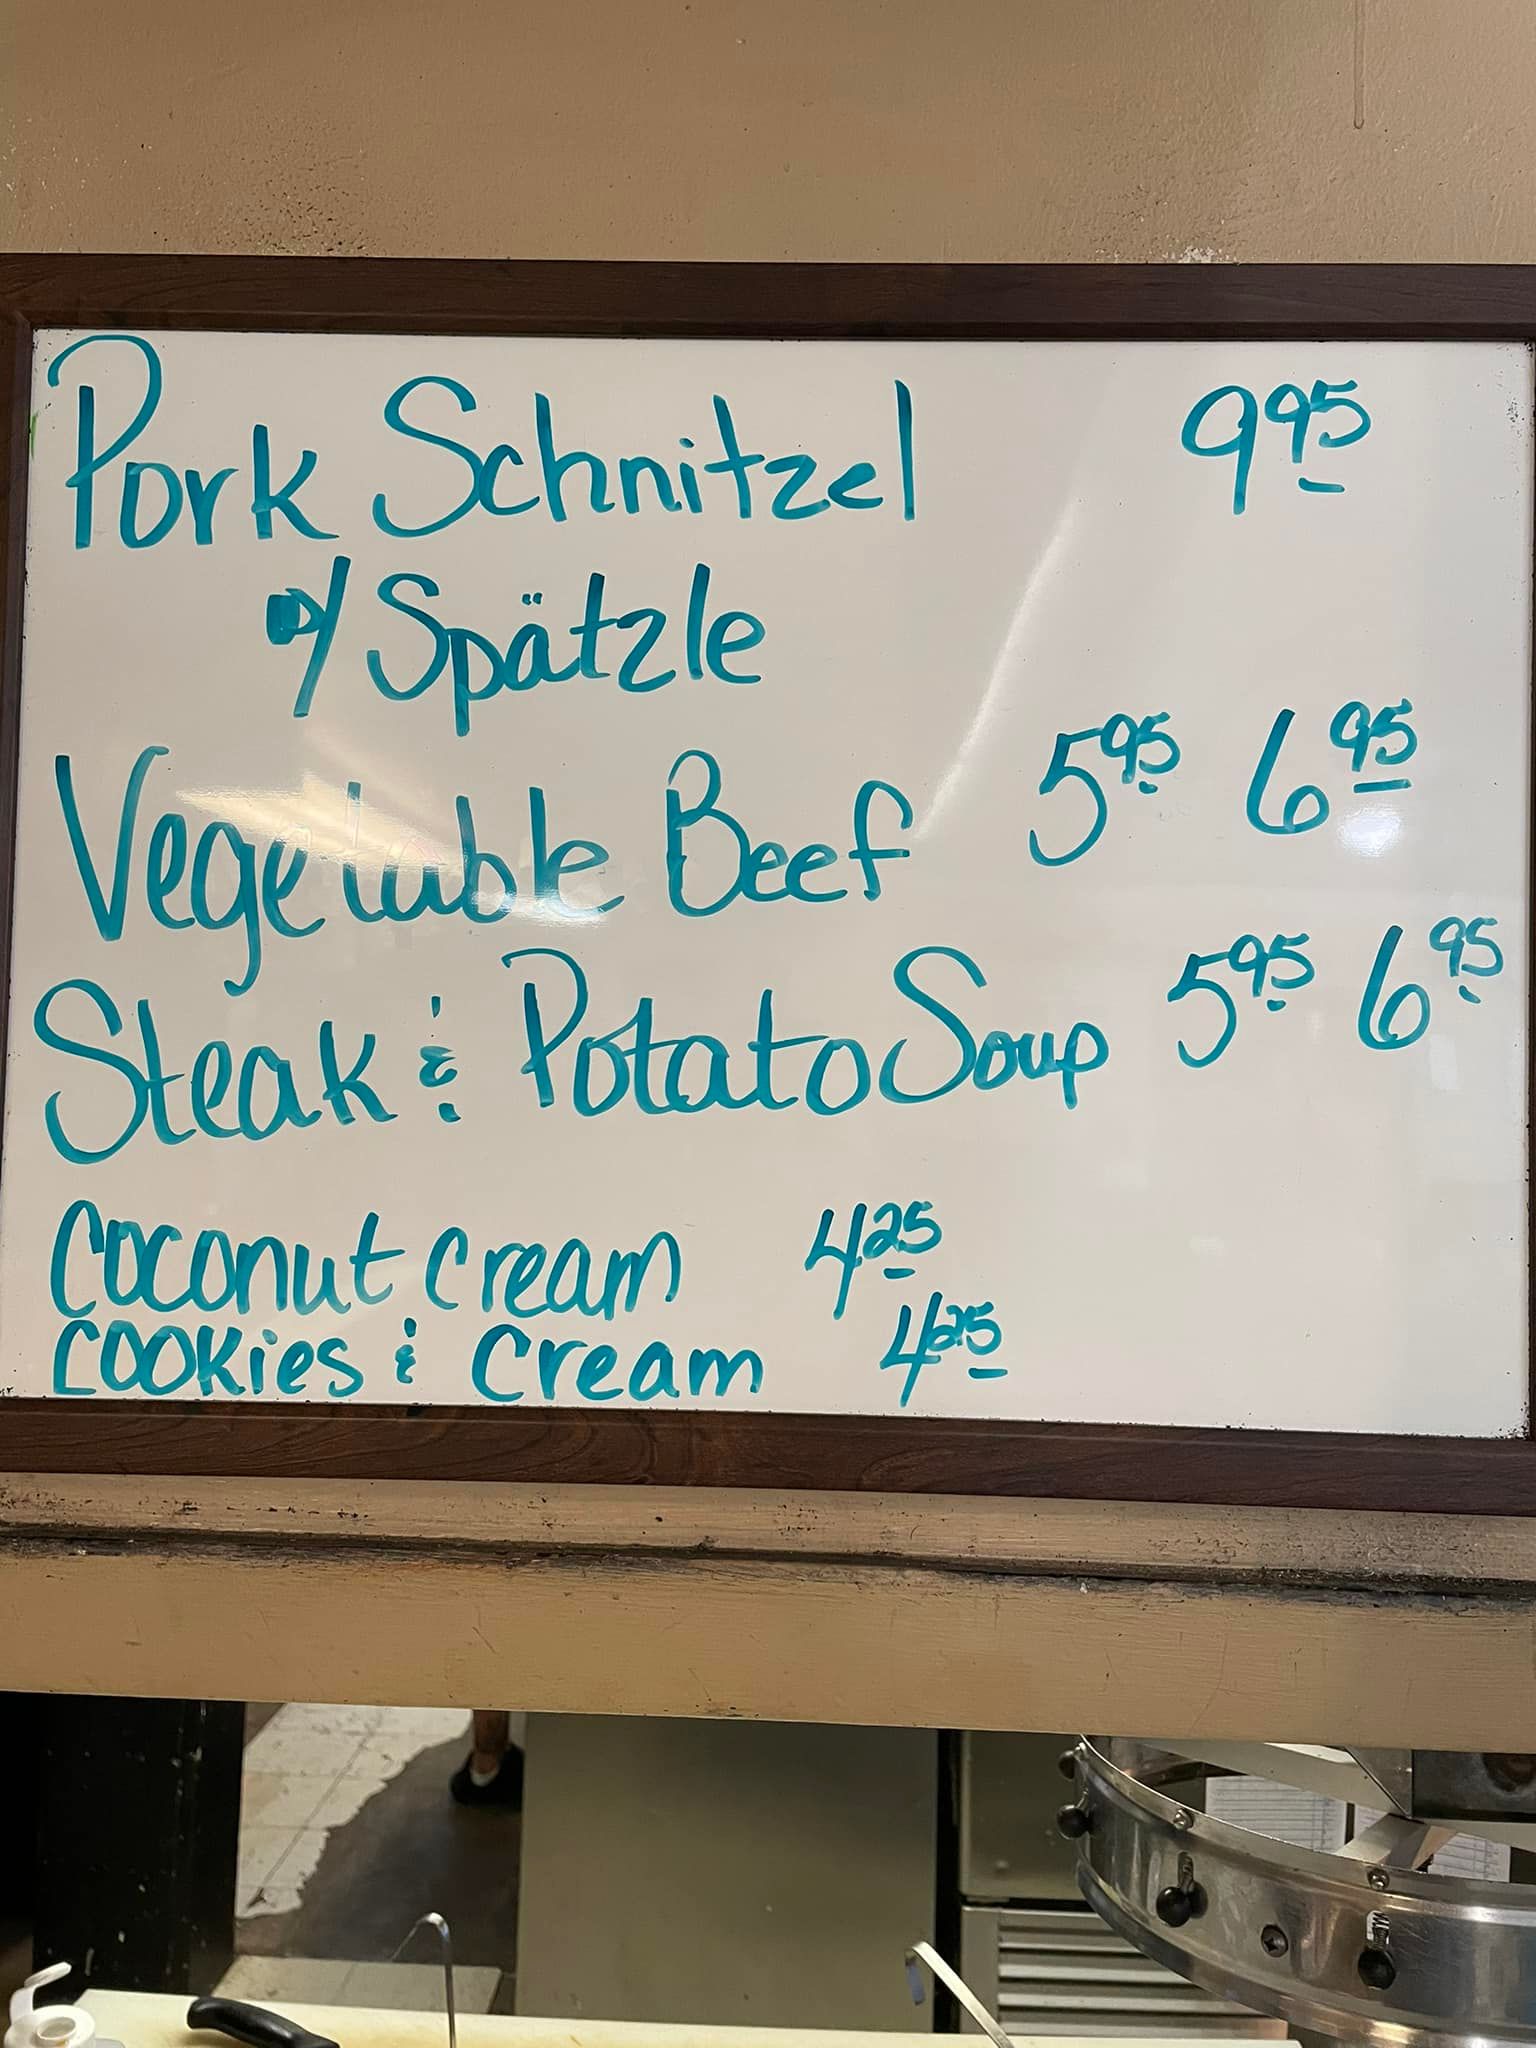 Pork Schnitzel 9.95
w/ Spätzle
Vegetable Beef 5.95 6.95
Steak & Potato Soup 5.95 6.95
Coconut Cream 4.25
Cookies & Cream 4.25